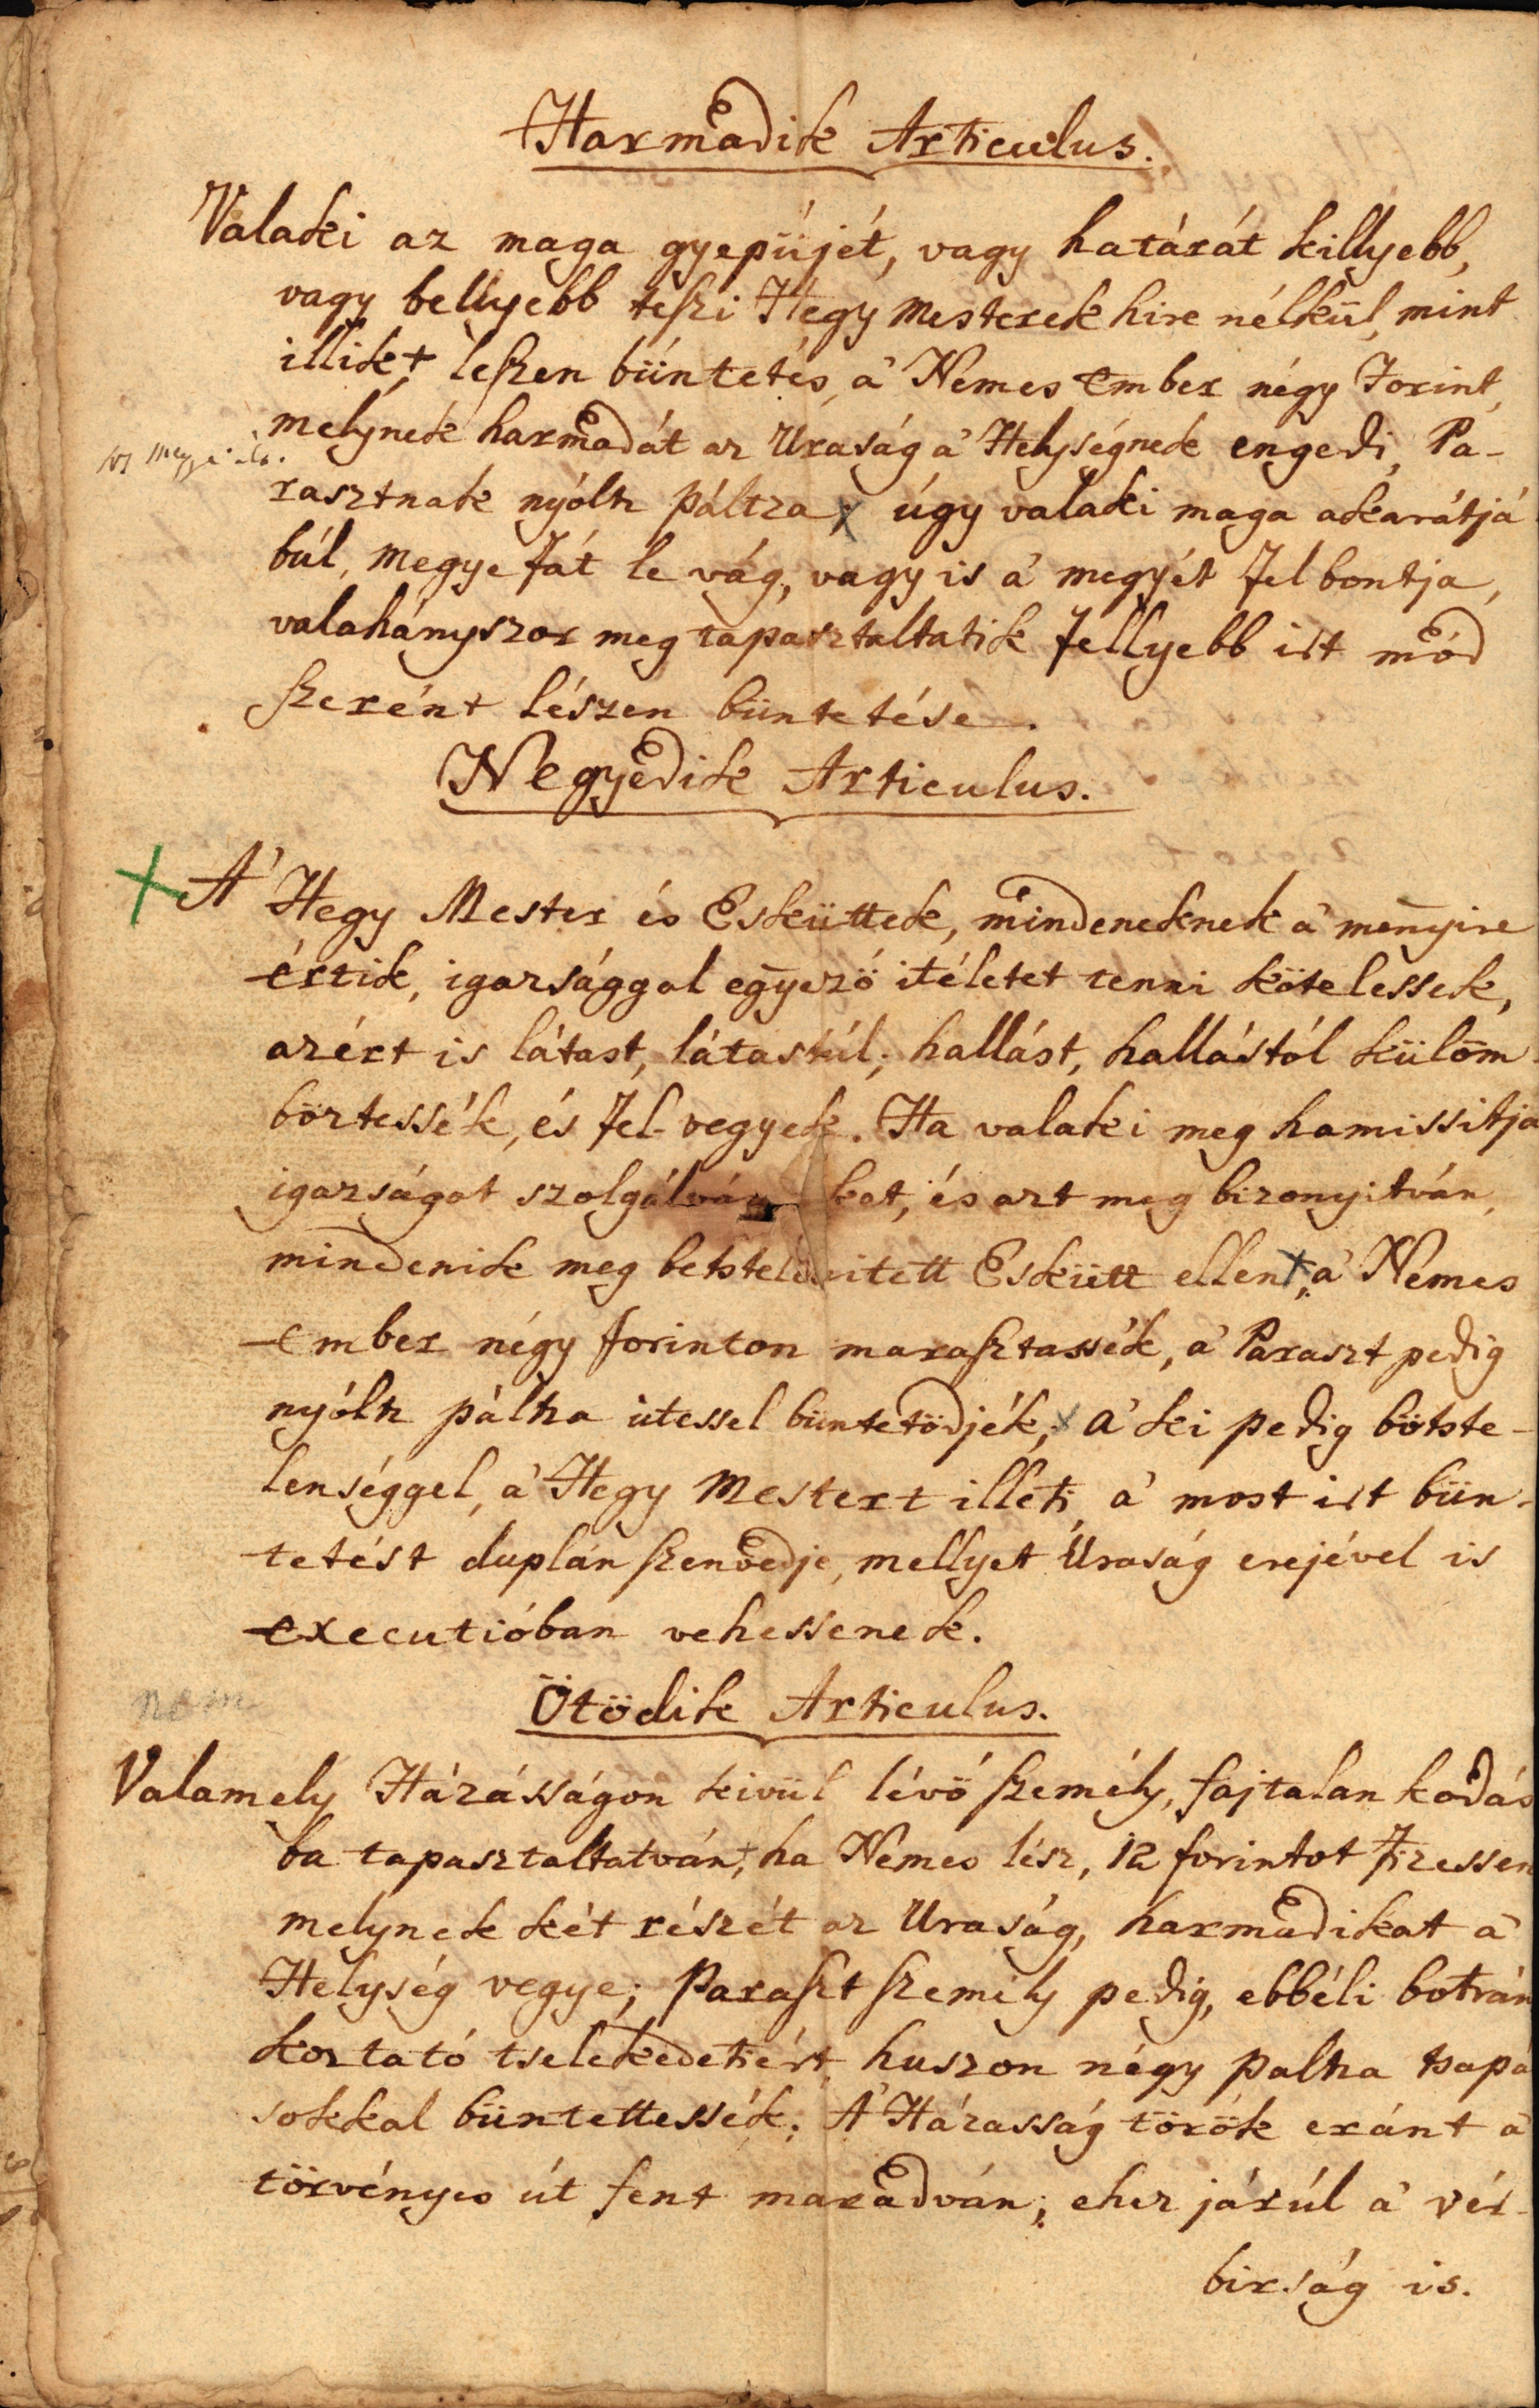 Harmadik Articulus.
Valaki az maga gyepüjét, vagy határát killyebb,
vagy bellyebb teszi Hegy Mesterek hire nélkül, mint
illik, leszen büntetés, a' Nemes Ember négy Forint,
melynek harmadát az Uraság a' Helységnek engedi, Pa-
rasztnak nyóltz páltza; úgy valaki maga akaratjá
búl, Megye fát le vág, vagy is a' megyét fel bontja,
valahányszor meg tapasztaltatik fellyebb irt mód
szerént lészen büntetése.
Negyedik Articulus.
A' Hegy Mester és Esküttek, mindeneknek a' menyire
értik, igazsággal egyező itéletet tenni kötelessek,
azért is látast, látastúl, hallást, hallástól külöm
böztessék, és fel vegyek. Ha valaki meg hamissitja
igazságot szolgálván ket, és azt meg bizonyitván,
mindenik meg betstelenitett Eskütt ellen, a' Nemes
Ember négy forinton marasztassék, a' Paraszt pedig
nyóltz páltza ütessel büntetődjék, a' ki pedig bötste-
lenséggel, a' Hegy Mestert illeti, a' most irt bün-
tetést duplán szenvedje, mellyet Uraság erejével is
executióban vehessenek.
nem
Ötödik Articulus.
Valamely Házásságon kivül lévő személy, fajtalan kodás
ba tapasztaltatván, ha Nemes lész, 12 forintot fizessen
melynek két részét az Uraság, harmadikat a'
Helység vegye; Paraszt személy pedig, ebbéli botrán
koztató tselekedetiért, huszon négy paltza tsapá
sokkal büntettessék. A' Házasság török eránt a'
törvényes út fent maradván; ehez járúl a' vér-
birság is.